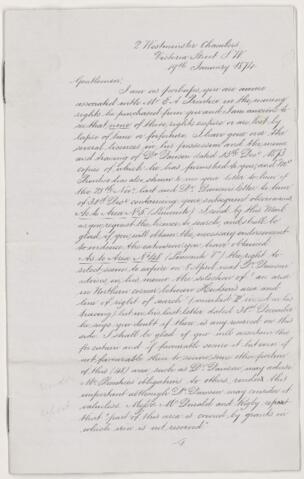 2 Westminster Chambers
Victoria Street S.W.
19th January 1874.
Gentlemen,
I am as perhaps you are aware
associated with Mr E. A. Prudhoe in the mining
rights he purchased from you and I am anxious to
see that none of these rights expire or are lost by
lapse of time or forfeiture. I have gone over the
several licences in his possession and the memo
and tracing of Dr Dawson dated 15th Dec. 1873
copies of which he has furnished to you, and Mr
has also shewn to me your letter to him of
the 28th Novr last and Dr Dawson's letter to him
of 31st Decr containing your subsequent observations
As to Area No 5 I send by this Mail
as you request the licence to search, and shall be
glad if you will obtain the necessary endorsement
to evidence the extension you have obtained
As to Area No 48 the right to
select same to expire in April next Dr Dawson
advises in his memo the selection of "an area
on Northern corner between Hudson's area and
line of right of search" (marked in
tracing) but in his last letter dated 31st December
he says "you doubt if there is any ground on this
side" I shall be glad if you will ascertain this
for certain and if favourable secure it but even if
not favourable then to secure some other portion
of this (48) area, such as Dr Dawson may advise
Mr obligations to others render this
important although Dr Dawson may consider it
valueless. Messrs McDonald and Rigby report
that "part of this area is covered by grants in
which iron is not reserved"